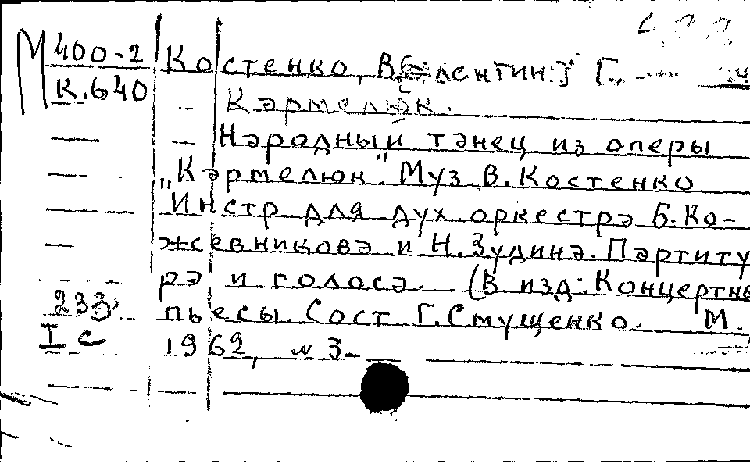 М 400-2 Костенко, Валентин Г.
К.640 Кармелюк.
Народный танец из оперы
"Кармелюк". Муз. В. Костенко
Инстр для дух оркестра Б. Ко-
жевникова и Н. Зудина. Партиту
ра и голоса (В изд: Концертны
233 пьесы. Сост Г. Смущенко. М.,
I с 1962, №3-